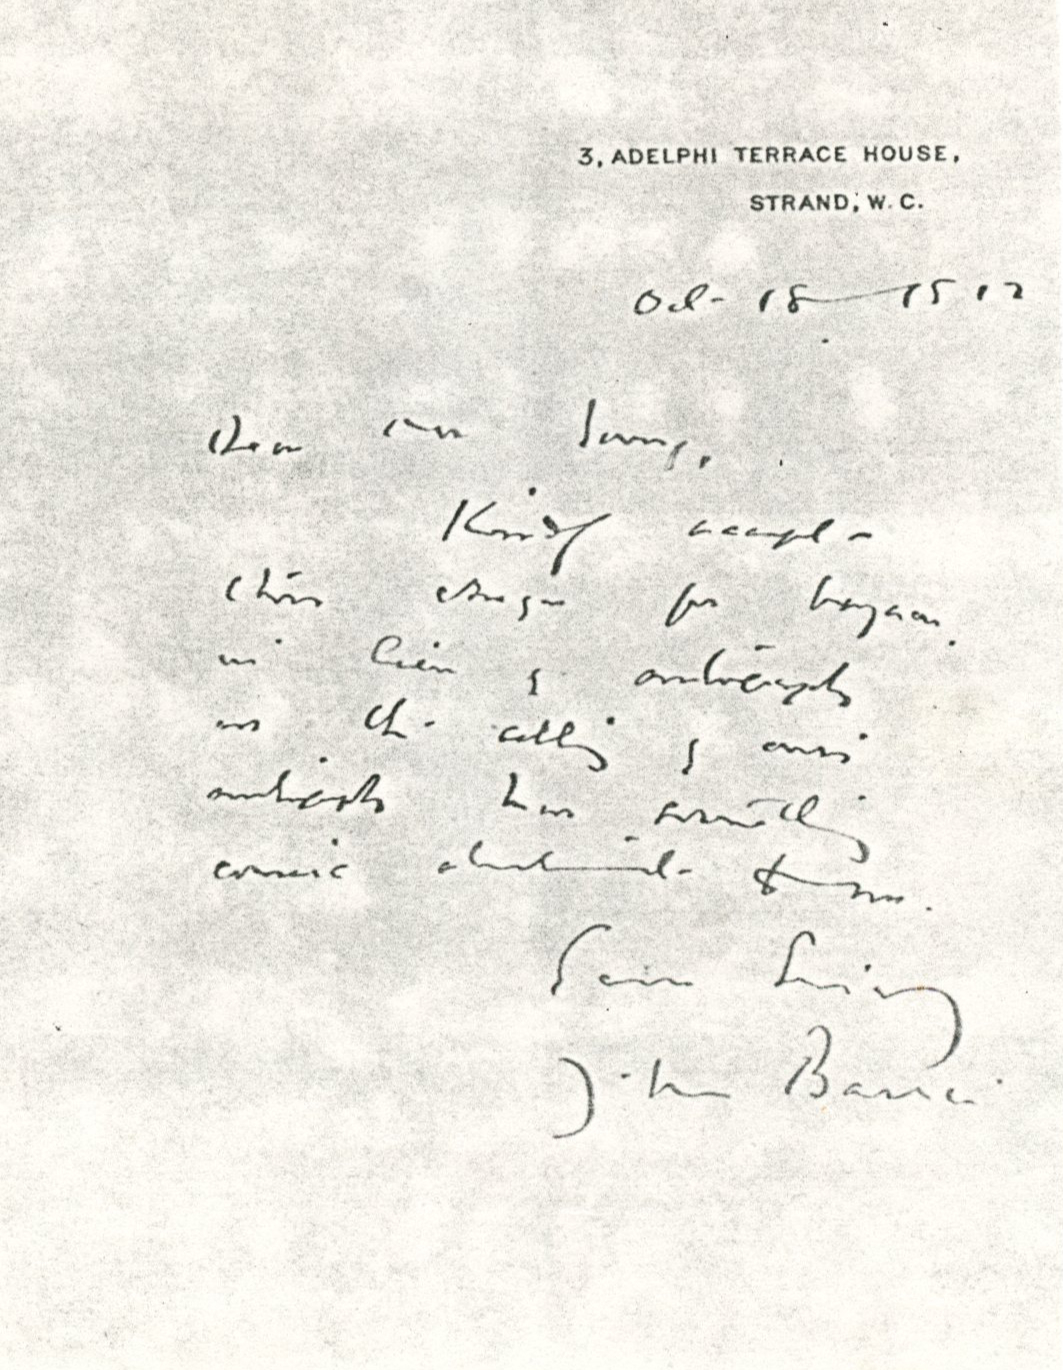 3, ADELPHI TERRACE HOUSE,
STRAND, W. C.
Oct 18 1912
Dear Mr
Kindly accept
this cheque for
in lieu of autographs
as the selling of one's
autographs has something
comic about it to me.
Yours Sincerely
J. M. Barrie